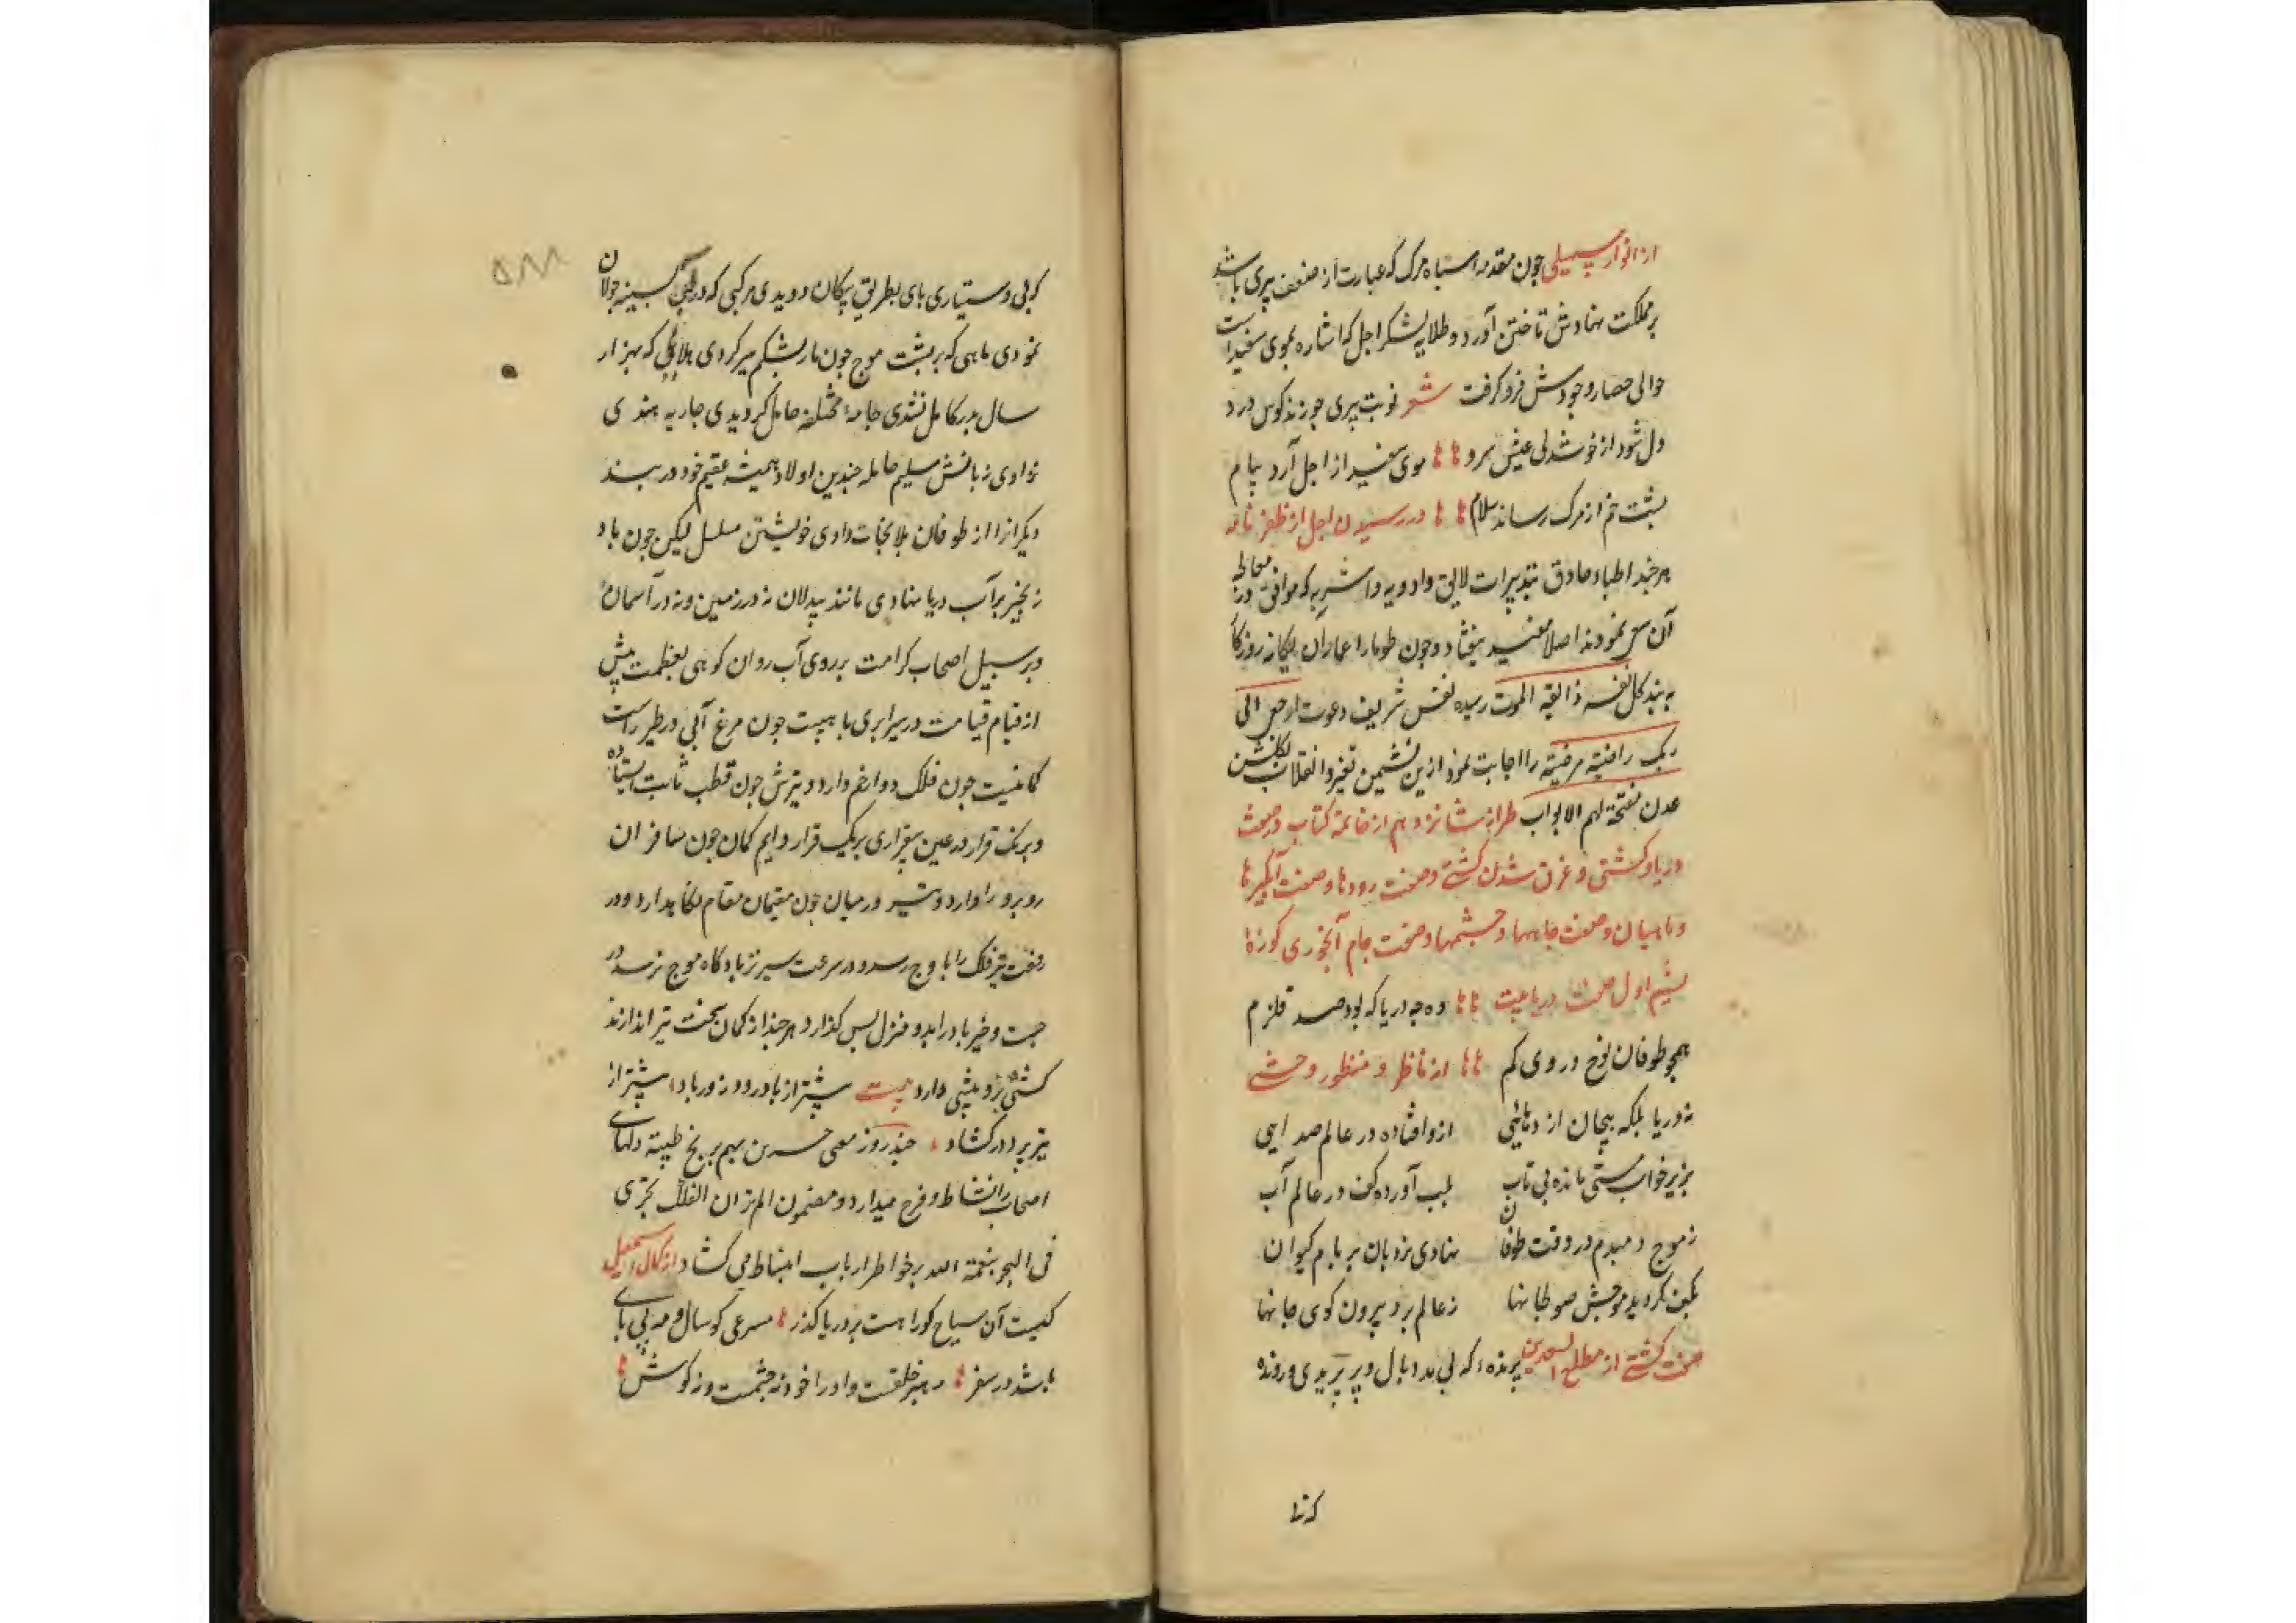 از انوار سهیلی چون مقدمه سپاه مرک که عبارت از ضعف پیری باشد
بر مملکت نهادش تاختن آورد و طلایه لشکر اجل که اشاره بموی سفید است
حوالی حصار وجودش فرو کرفت شعر نوبت پیری چو زند کوس درد
دل شود از خوشدلی عیش سرد ٪٪ موی سفید از اجل آرد پیام
پشت خم از مرک رساند سلام ٪٪ در رسیدن اجل از ظفر نامه
هر چند اطباء حاذق بتدبیرات لایق و ادویه و اشربه که موافق ورزه معالجه
آن سعی نمودند اصلا مفید نیفتاد و چون طومار اعمار آن یکانه روزکا
به بند کل نفس ذائقة الموت رسیده نفس شریف دعوت ارجعی الی
ربک راضیة مرضیة را اجابت نمود ازین نشیمن تغیر و انقلاب بکلشن
عدن مفتحة لهم الابواب طراز شانزدهم از خاتمه کتاب در صفت
دریا و کشتی و غرق شدن کشتی و صفت رودها و صفت آبکیرها
و ماهیان و صفت چاهها و چشمها و صفت جام آبخوری کوزه
نسیم اول صفت دریا بیت ٪٪ وه چه دریا که بود صد قلزم
همچو طوفان نوح در وی کم ٪٪ از ناظر و منظور وحشی
نه دریا بلکه پیچان اژدهائی ازو افتاده در عالم صدایی
بزیر خواب مستی مانده بی تاب بلب آورده کف در عالم آب
زموج دمبدم در وقت طوفان نهادی نردبان بر بام کیوان
بکف کردید موجش صولجانها زعالم برد بیرون کوی جانها
صفت کشتی از مطلع السعدین پرنده که بی مدد بال و پر پریدی و رونده
که تا
که بی دستیاری پای بطریق پیکان دویدی مرکبی که در آبکینه جولان
نمودی ماهی که بر پشت موج چون مار بشکم سیر کردی هلالی که بهزار
سال بدر کامل نشدی جامه مختلفه حامل کردیدی جاریه هندی
نژادی زبانش سلیم حامله چندین اولاد همیشه عقیم خود در بند
دیکرانرا از طوفان بلا نجات دادی خویشتن مسلسل لیکن چون باد
زنجیر بر آب دریا نهادی مانند بیدلان نه در زمین و نه در آسمان
و بر سبیل اصحاب کرامت بر روی آب روان کوهی بعظمت پیش
از قیام قیامت در سیر ابری با هیبت چون مرغ آبی در طیر راست
کمانیست چون فلک دوار خم دارد و تیرش چون قطب ثابت ایستاده
و بر یک قرار در عین بیقراری بر یک قرار دایم کمان چون مسافران
رو برو راه دارد و تیر در میان چون مقیمان مقام نکاه دارد و در
رفعت تیر فلک را با وج رسد و در سرعت سیر تر باد کاه موج نرسد در
جست و خیز با در آید و منزل پس کذارد هر چند از کمان سخت تیر اندازند
کشتی برو پیشی دارد بیت پیشتر از باد رود زور باد پیشتر از
تیر پرد در کشاد چند روز معنی جرین بهم بریح طیبة دلهای
اصحاب را نشاط و فرح میدارد و مضمون الم تر ان الفلک تجری
فی البحر بنعمة الله بر خواطر ارباب انبساط می کشاد از کمال اسمعیل
کیست آن سیاح کورا هست بر دریا کذر ٪ مسرعی کو سال و مه بی پای
باشد در سفر ٪٪ رهبر خلقست و او را خود نه چشمست و نه کوش ٪٪